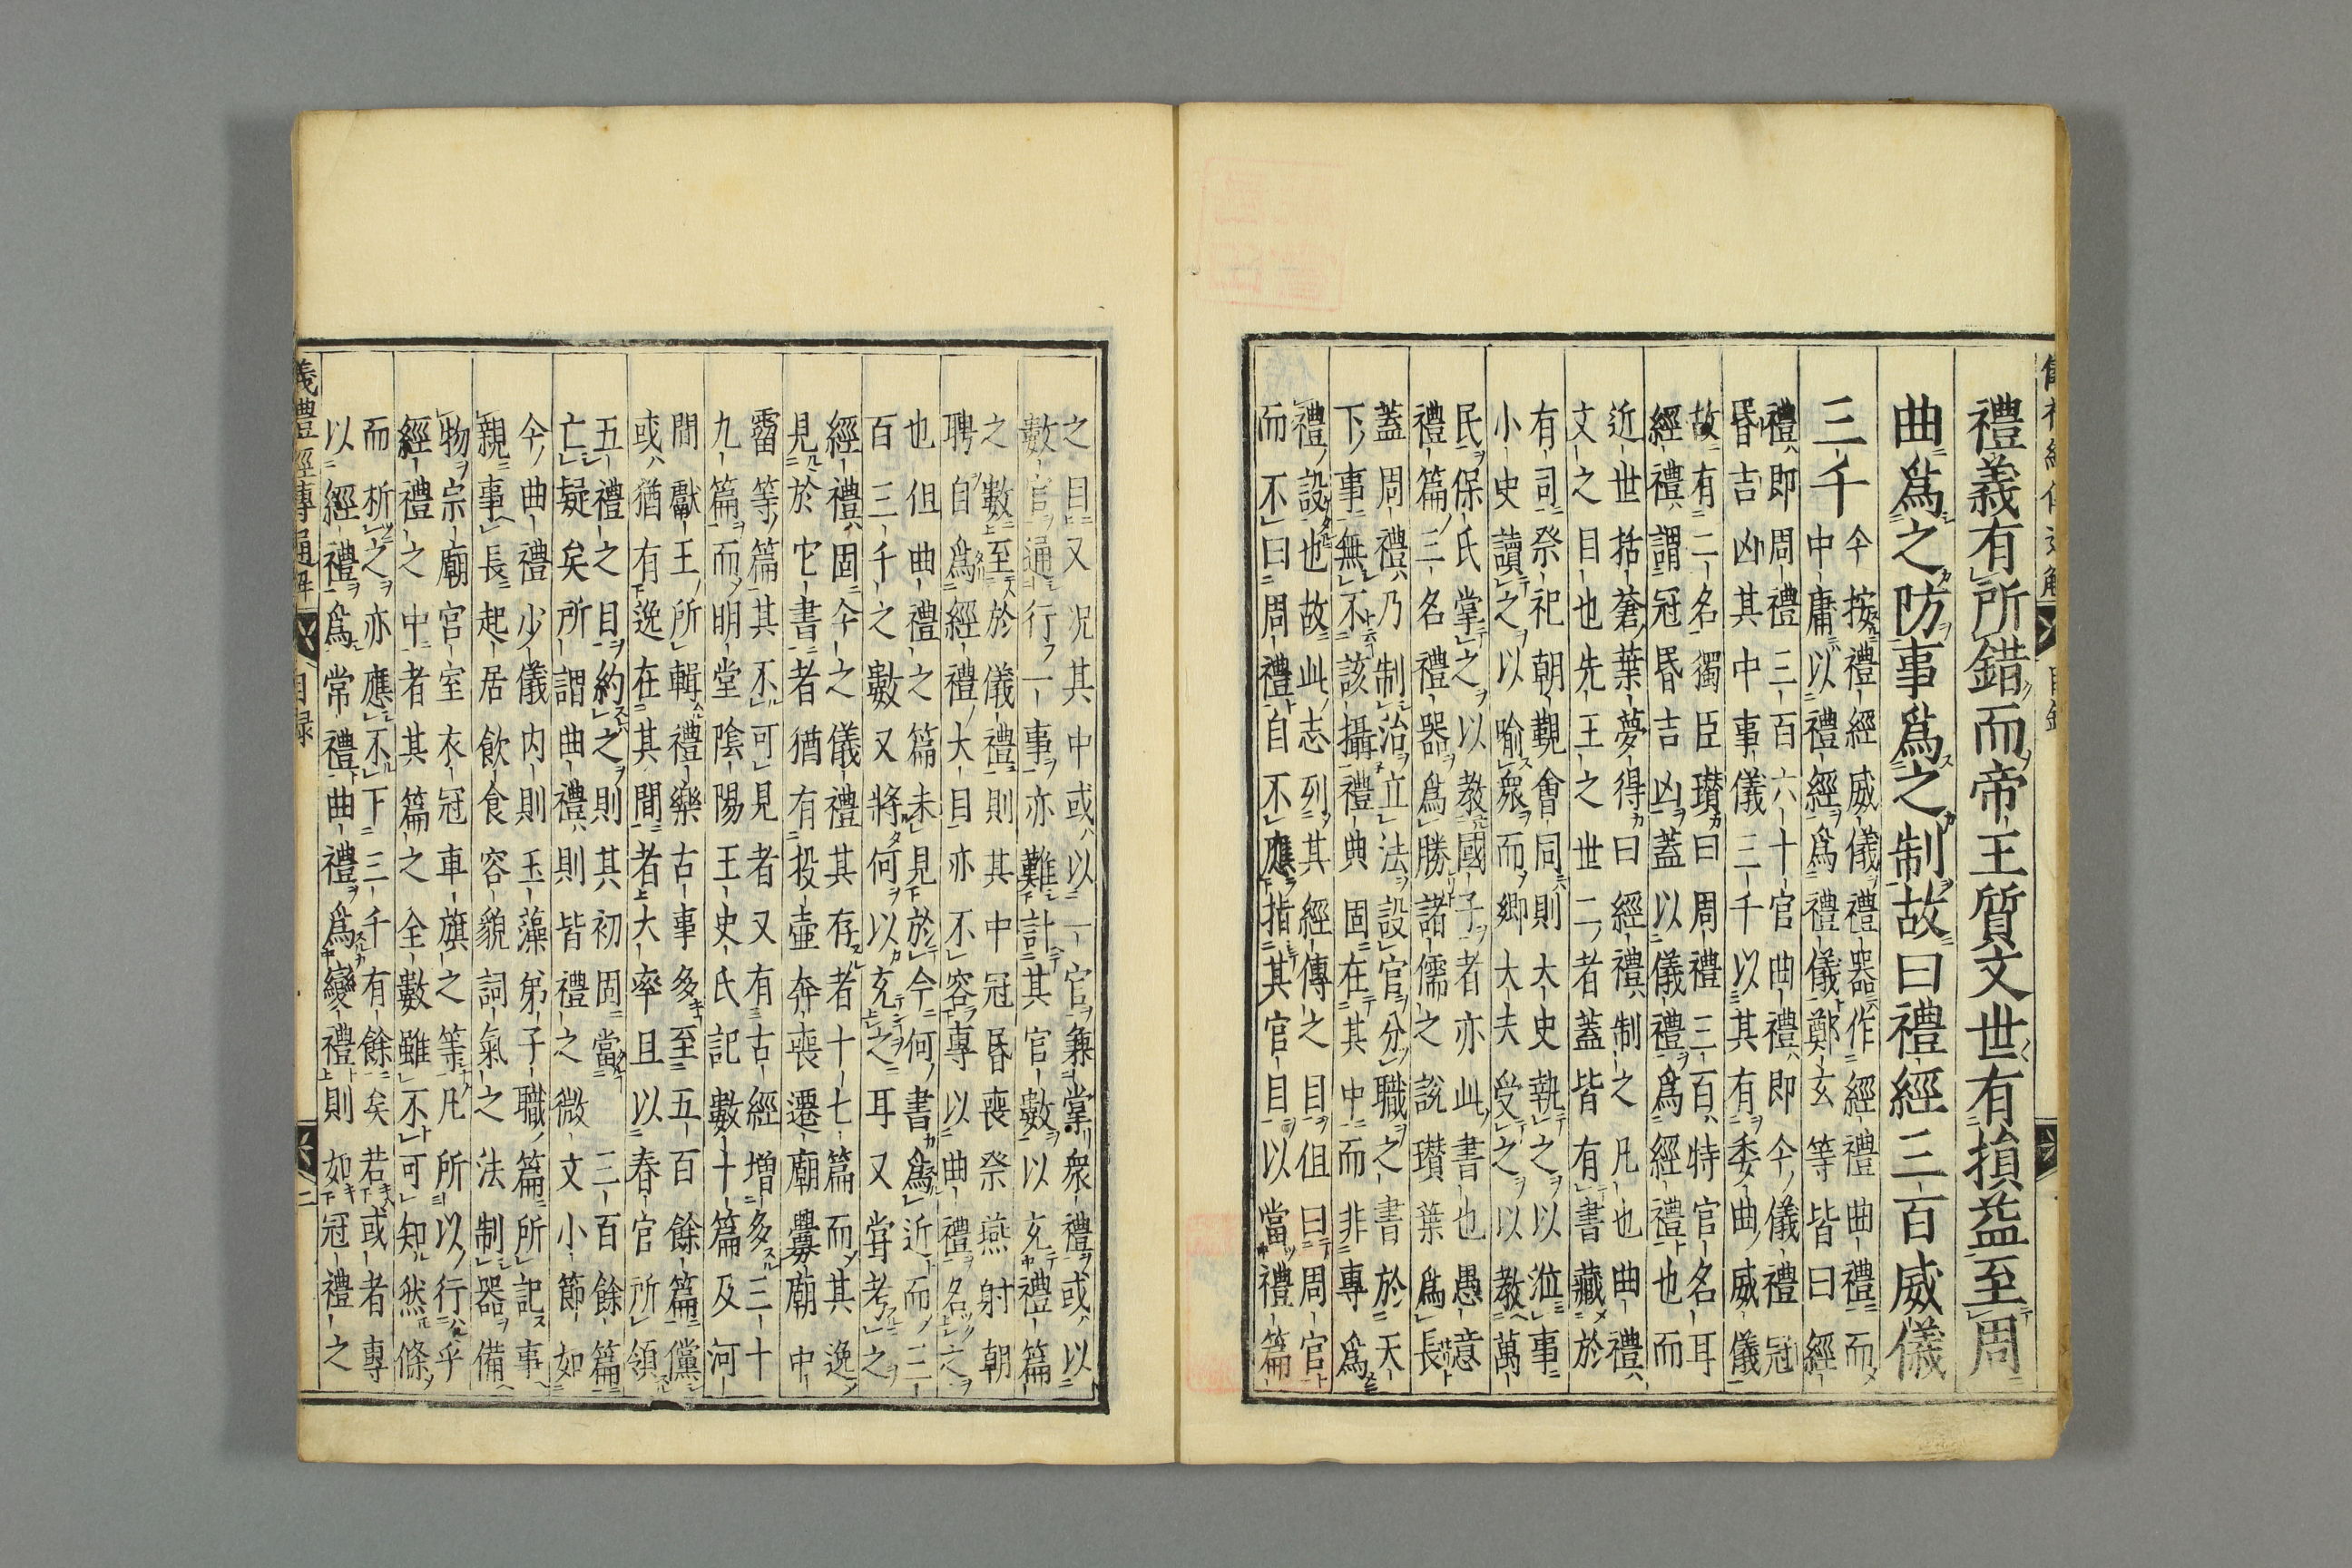 禮義有所錯而帝王質文世有損益至周
曲爲之防事爲之制故曰禮經三百威儀
三千
今按禮經威儀禮器作經禮曲禮而
中庸以禮經爲禮儀鄭玄等皆曰經
禮即周禮三百六十官曲禮即今儀禮冠
昏吉凶其中事儀三千以其有委曲威儀
故有二名獨臣瓚曰周禮三百特官名耳
經禮謂冠昏吉凶蓋以儀禮爲經禮也而
近世括蒼葉夢得曰經禮制之凡也曲禮
文之目也先王之世二者蓋皆有書藏於
有司祭祀朝覲會同則大史執之以涖事
小史讀之以喻衆而卿大夫受之以教萬
民保氏掌之以教國子者亦此書也愚意
禮篇三名禮器爲勝諸儒之說瓚葉爲長
蓋周禮乃制治立法設官分職之書於天
下事無不該攝禮典固在其中而非專爲
禮設也故此志列其經傳之目但曰周官
而不曰周禮自不應指其官目以當禮篇
之目又況其中或以一官兼掌衆禮或以
數官通行一事亦難計其官數以充禮篇
之數至於儀禮則其中冠昏喪祭燕射朝
聘自爲經禮大目亦不容專以曲禮名之
也但曲禮之篇未見於今何書爲近而三
百三千之數又將何以充之耳又嘗考之
經禮固今之儀禮其存者十七篇而其逸
見於它書者猶有投壺奔喪遷廟釁廟中
霤等篇其不可見者又有古經增多三十
九篇而明堂陰陽王史氏記數十篇及河
間獻王所輯禮樂古事多至五百餘篇儻
或猶有逸在其間者大率且以春官所領
五禮之目約之則其初固當三百餘篇
亡疑矣所謂曲禮則皆禮之微文小節如
今曲禮少儀内則玉藻弟子職篇所記事
親事長起居飲食容貌詞氣之法制器備
物宗廟宮室衣冠車旗之等凡所以行乎
經禮之中者其篇之全數雖不可知然條
而析之亦應不下三千有餘矣若或者專
以經禮爲常禮曲禮爲變禮則如冠禮之
儀禮經傳通解 目録 二